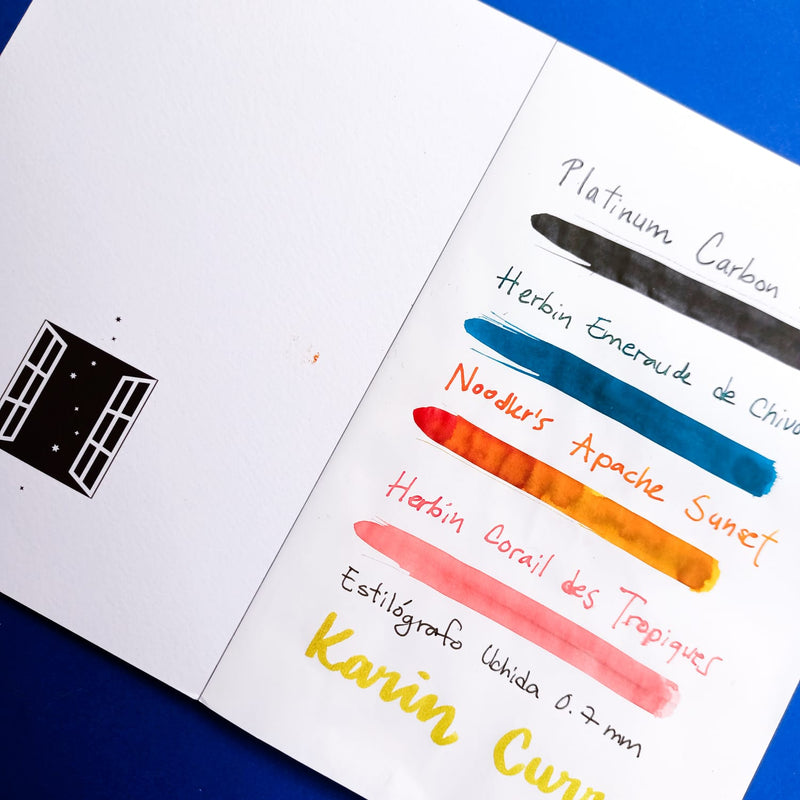 Platinum Carbon
Herbin Emeraude de Chivo
Noodler's Apache Sunset
Herbin Corail des Tropiques
Estilógrafo Uchida 0.7 mm
Karin